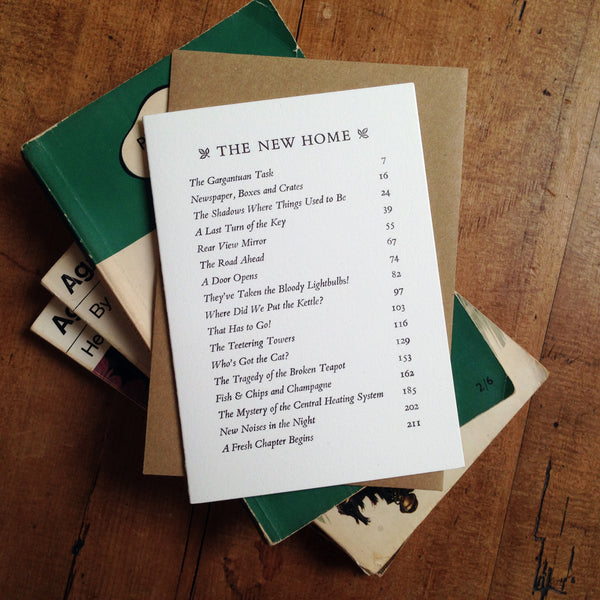 THE NEW HOME
The Gargantuan Task 7
Newspaper, Boxes and Crates 16
The Shadows Where Things Used to Be 24
A Last Turn of the Key 39
Rear View Mirror 55
The Road Ahead 67
A Door Opens 74
They've Taken the Bloody Lightbulbs! 82
Where Did We Put the Kettle? 97
That Has to Go! 103
The Teetering Towers 116
Who's Got the Cat? 129
The Tragedy of the Broken Teapot 153
Fish & Chips and Champagne 162
The Mystery of the Central Heating System 185
New Noises in the Night 202
A Fresh Chapter Begins 211
By
2/6